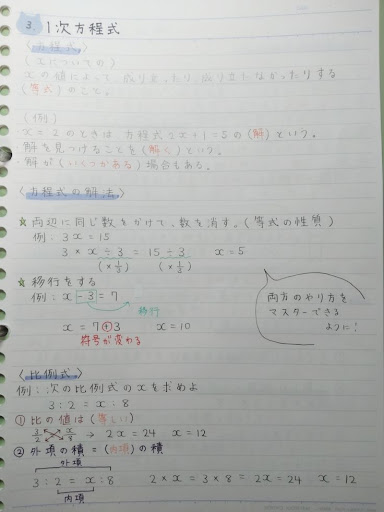 3. 1次方程式
〈方程式〉
(xについての)
xの値によって、成り立ったり、成り立しなかったりする
(等式)のこと。
(例)
x=2のときは、方程式2x+1=5の(解)という。
・解を見つけることを(解く)という。
・解が(いくつかある)場合もある。
〈方程式の解法〉
☆両辺に同じ数をかけて、数を消す。(等式の性質)
例:3x=15
3×x÷3=15÷3 x=5
(×1/3) (×1/3)
☆移行をする
例:x-3=7
移行
x=7+3 x=10
符号が変わる
両方のやり方を
マスターできる
ように!
〈比例式〉
例:次の比例式のxを求めよ
3:2=x:8
①比の値は(等しい)
3/2 x/8 → 2x=24 x=12
②外項の積=(内項)の積
外項
3:2=x:8 2×x=3×8=2x=24 x=12
内項